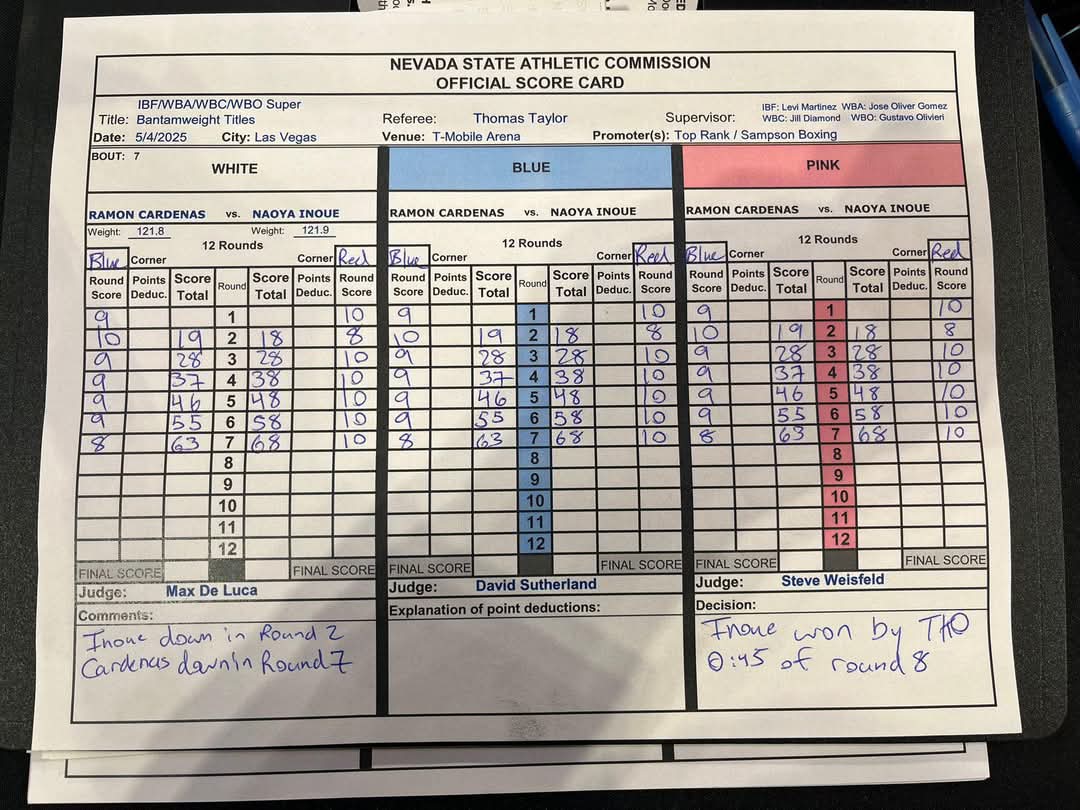 NEVADA STATE ATHLETIC COMMISSION
OFFICIAL SCORE CARD
IBF/WBA/WBC/WBO Super
Title: Bantamweight Titles
Referee: Thomas Taylor
Supervisor: IBF: Levi Martinez WBA: Jose Oliver Gomez
WBC: Jill Diamond WBO: Gustavo Olivieri
Date: 5/4/2025 City: Las Vegas Venue: T-Mobile Arena Promoter(s): Top Rank / Sampson Boxing
BOUT: 7
WHITE BLUE PINK
RAMON CARDENAS vs. NAOYA INOUE RAMON CARDENAS vs. NAOYA INOUE RAMON CARDENAS vs. NAOYA INOUE
Weight: 121.8 Weight: 121.9
12 Rounds 12 Rounds 12 Rounds
Blue Corner Corner Red Blue Corner Corner Red Blue Corner Corner Red
Round Score Points Deduc. Score Total Round Score Total Points Deduc. Round Score Round Score Points Deduc. Score Total Round Score Total Points Deduc. Round Score Round Score Points Deduc. Score Total Round Score Total Points Deduc. Round Score
9 1 10 9 1 10 9 1 10
10 19 2 18 8 10 19 2 18 8 10 19 2 18 8
9 28 3 28 10 9 28 3 28 10 9 28 3 28 10
9 37 4 38 10 9 37 4 38 10 9 37 4 38 10
9 46 5 48 10 9 46 5 48 10 9 46 5 48 10
9 55 6 58 10 9 55 6 58 10 9 55 6 58 10
8 63 7 68 10 8 63 7 68 10 8 63 7 68 10
8 8 8
9 9 9
10 10 10
11 11 11
12 12 12
FINAL SCORE FINAL SCORE FINAL SCORE FINAL SCORE FINAL SCORE FINAL SCORE
Judge: Max De Luca Judge: David Sutherland Judge: Steve Weisfeld
Comments: Explanation of point deductions: Decision:
Inoue down in Round 2
Cardenas down in Round 7
Inoue won by TKO
0:45 of round 8